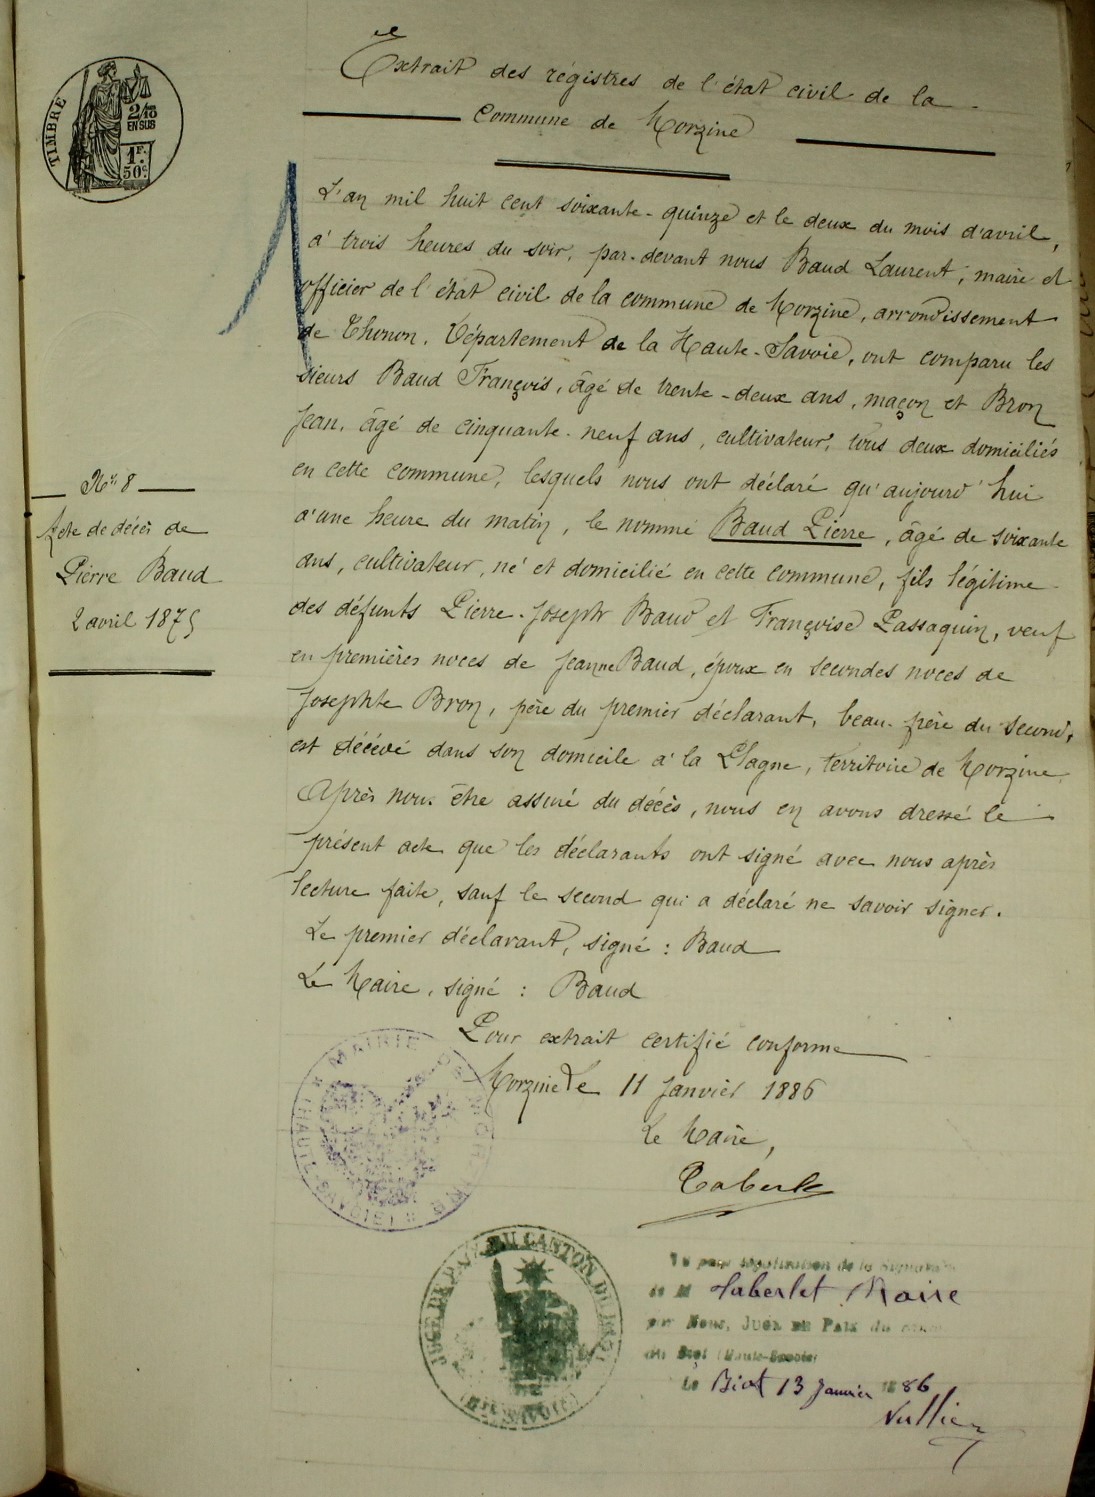 TIMBRE
2/10
EN SUS
1F.
50c.
Extrait des régistres de l'état civil de la
commune de Morzine
L'an mil huit cent soixante-quinze et le deux du mois d'avril,
à trois heures du soir, par-devant nous Baud Laurent, maire et
officier de l'état civil de la commune de Morzine, arrondissement
de Thonon, Département de la Haute-Savoie, ont comparu les
sieurs Baud François, âgé de trente-deux ans, maçon et Bron
Jean, âgé de cinquante-neuf ans, cultivateur, tous deux domiciliés
en cette commune, lesquels nous ont déclaré qu'aujourd'hui
à une heure du matin, le nommé Baud Pierre, âgé de soixante
ans, cultivateur, né et domicilié en cette commune, fils légitime
des défunts Pierre-Joseph Baud et Françoise Passaquin, veuf
en premières noces de Jeanne Baud, époux en secondes noces de
Josephte Bron, père du premier déclarant, beau-frère du second,
est décédé dans son domicile à la Plagne, territoire de Morzine.
Après nous être assuré du décès, nous en avons dressé le
présent acte que les déclarants ont signé avec nous après
lecture faite, sauf le second qui a déclaré ne savoir signer.
Le premier déclarant, signé : Baud
Le Maire, signé : Baud
Pour extrait certifié conforme
Morzine le 11 Janvier 1886
Le Maire,
Taberlet
No 8
Acte de décès de
Pierre Baud
2 avril 1875
MAIRIE DE MORZINE
(HAUTE-SAVOIE)
JUGE DE PAIX DU CANTON DU BIOT
(HTE SAVOIE)
Vu pour légalisation de la signature
de M Taberlet Maire
par Nous, JUGE DE PAIX du
du Biot (Haute-Savoie)
Le Biot 13 Janvier 1886
Vullier